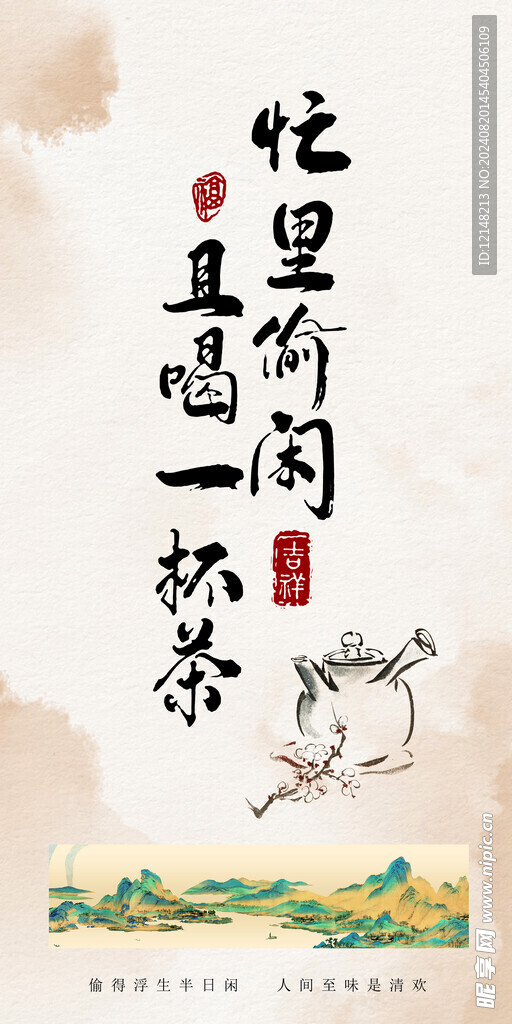 忙里偷闲
福
且喝一杯茶
吉祥
偷得浮生半日闲 人间至味是清欢
ID:12148213 NO:20240820145404506109
昵享网 www.nipic.cn